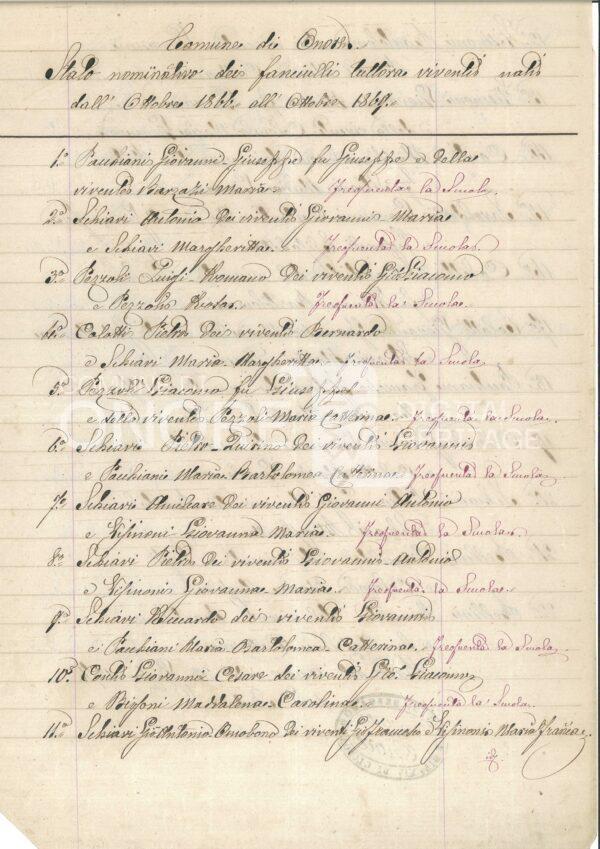 Comune di Onore.
Stato nominativo dei fanciulli tuttora viventi nati
dall' Ottobre 1866 all' Ottobre 1867.
1º Pacchiani Giovanni Giuseppe fu Giuseppe e della
vivente Maria Frequenta la Scuola.
2º Schiavi Antonio dei viventi Giovanni Maria
e Schiavi Margheritta. Frequenta la Scuola.
3º Pezzoli Luigi Romano dei viventi Giacomo
e Pezzoli Frequenta la Scuola.
4º Pietro dei viventi Bernardo
e Schiavi Maria Margheritta Frequenta la Scuola
5º Giacomo fu Giuseppe
e della vivente Pezzoli Maria Catterina Frequenta la Scuola.
6º Schiavi Pietro Quirino dei viventi Giovanni
e Pacchiani Maria Bartolomea Catterina Frequenta la Scuola.
7º Schiavi Amilcare dei viventi Giovanni Antonio
e Giovanna Maria. Frequenta la Scuola.
8º Schiavi Pietro dei viventi Giovanni Antonio
e Giovanna Maria. Frequenta la Scuola.
9º Schiavi Riccardo dei viventi Giovanni
e Pacchiani Maria Bartolomea Catterina. Frequenta la Scuola
10º Conti Giovanni Cesare dei viventi Giacomo
e Maddalena Carolina. Frequenta la Scuola.
11º Schiavi Antonio Omobono dei viventi Francesco e Maria